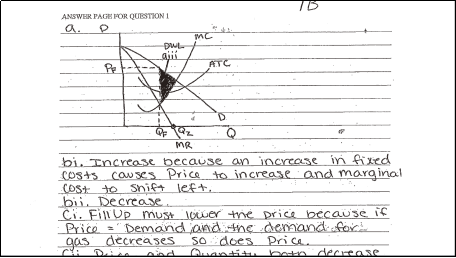 1B
ANSWER PAGE FOR QUESTION 1
a. P
MC
DWL
aiii
ATC
PF
D
QF Q2 Q
MR
bi. Increase because an increase in fixed
costs causes Price to increase and marginal
cost to shift left.
bii. Decrease.
Ci. FillUp must lower the price because if
Price = Demand and the demand for
gas decreases so does Price.
Cii. Price and Quantity both decrease